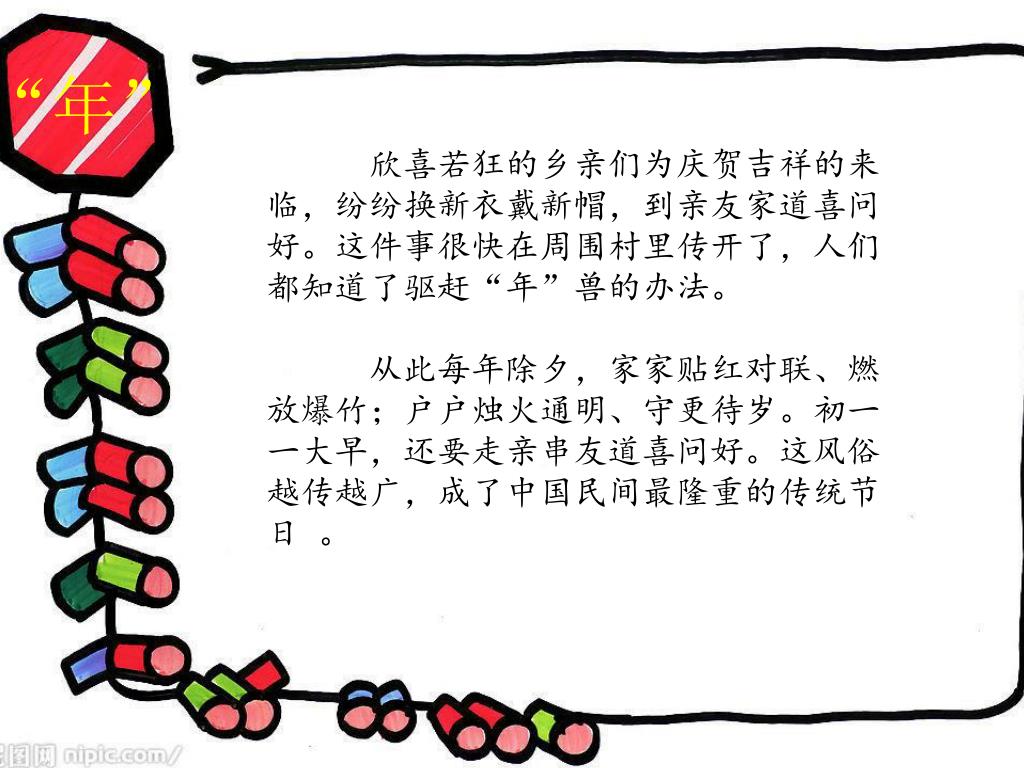 “年”
欣喜若狂的乡亲们为庆贺吉祥的来
临，纷纷换新衣戴新帽，到亲友家道喜问
好。这件事很快在周围村里传开了，人们
都知道了驱赶“年”兽的办法。
从此每年除夕，家家贴红对联、燃
放爆竹；户户烛火通明、守更待岁。初一
一大早，还要走亲串友道喜问好。这风俗
越传越广，成了中国民间最隆重的传统节
日 。
图网 nipic.com/